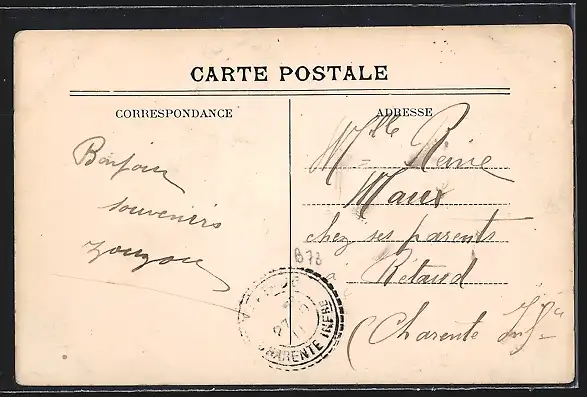 CARTE POSTALE
CORRESPONDANCE
ADRESSE
Bonjour
souvenirs
Zouzou
Mlle Reine
Maux
chez ses parents
à Rétaud
(Charente Infre
B73
CHARENTE INFRE
27